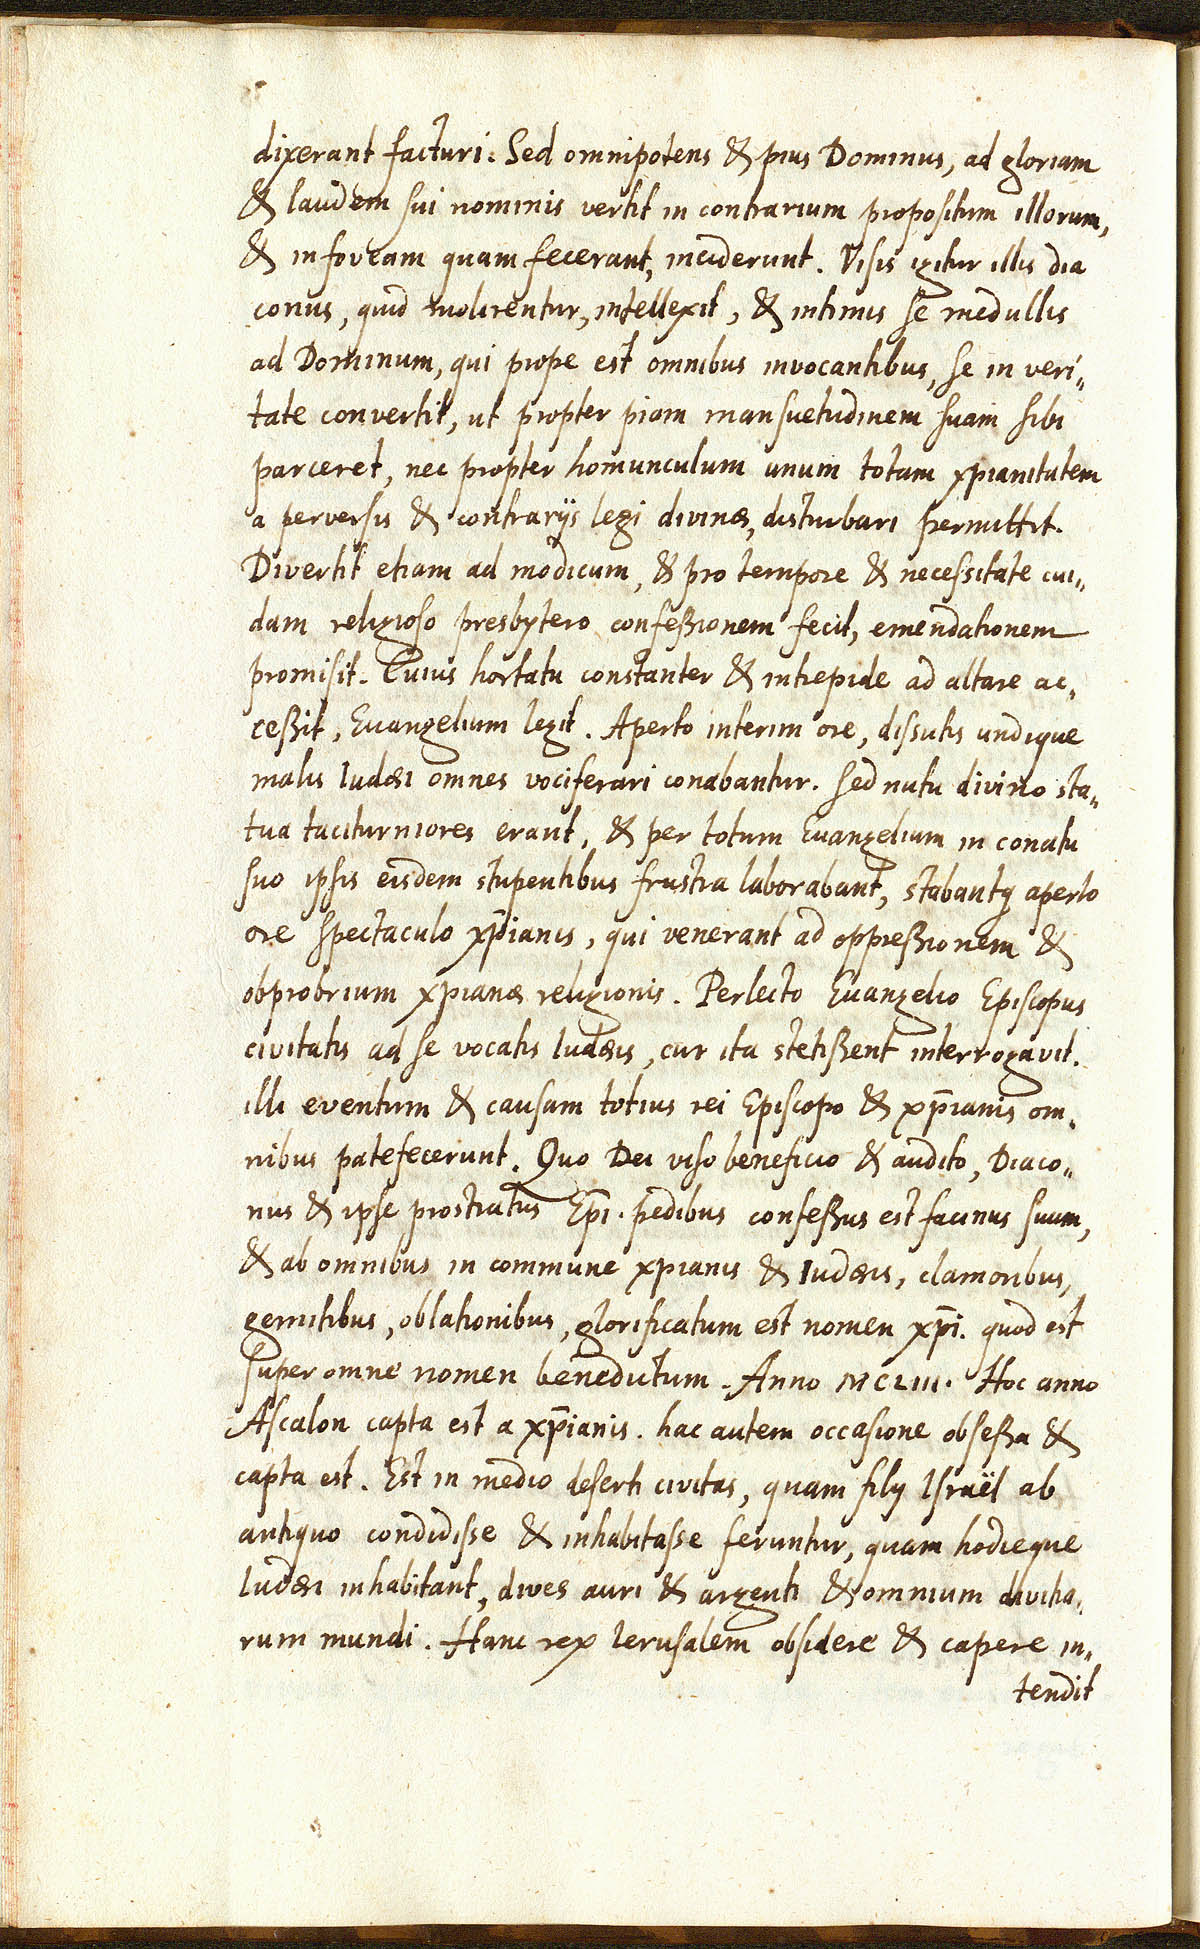 dixerant facturi. Sed omnipotens & pius Dominus, ad gloriam
& laudem sui nominis vertit in contrarium propositum illorum,
& in foveam quam fecerant, inciderunt. Visis igitur illis dia
conus, quid molirentur, intellexit, & intimis se medullis
ad Dominum, qui prope est omnibus invocantibus, se in veri„
tate convertit, ut propter piam mansuetudinem suam sibi
parceret, nec propter homunculum unum totam xpianitatem
a perversis & contrarijs legi divinæ, disturbari permittit.
Divertit etiam ad modicum, & pro tempore & necessitate cui„
dam religioso presbytero confeßionem fecit, emendationem
promisit. Cuius hortatu constanter & intrepide ad altare ac„
ceßit, Evangelium legit. Aperto interim ore, dissutis undique
malis Iudæi omnes vociferari conabantur. Sed nutu divino sta„
tua taciturniores erant, & per totum Evangelium in conatu
suo ipsis eisdem stupentibus frustra laborabant, stabantq aperto
ore spectaculo xp̄ianis, qui venerant ad oppreßionem &
obprobrium xpianæ religionis. Perlecto Evangelio Episcopus
civitatis ad se vocatis Iudæis, cur ita stetißent interrogavit.
illi eventum & causam totius rei Episcopo & xp̄ianis om„
nibus patefecerunt. Quo Dei viso beneficio & audito, Diaco„
nus & ipse prostratus Ep̄i. pedibus confeßus est facinus suum,
& ab omnibus in commune xpianis & Iudæis, clamoribus,
gemitibus, oblationibus, glorificatum est nomen xp̄i. quod est
super omne nomen benedictum. Anno MCLIII. Hoc anno
Ascalon capta est a xp̄ianis. hac autem occasione obseßa &
capta est. Est in medio deserti civitas, quam filij Israël ab
antiquo condidisse & inhabitasse feruntur, quam hodieque
Iudæi inhabitant, dives auri & argenti & omnium divitia„
rum mundi. Hanc rex Ierusalem obsidere & capere in„
tendit